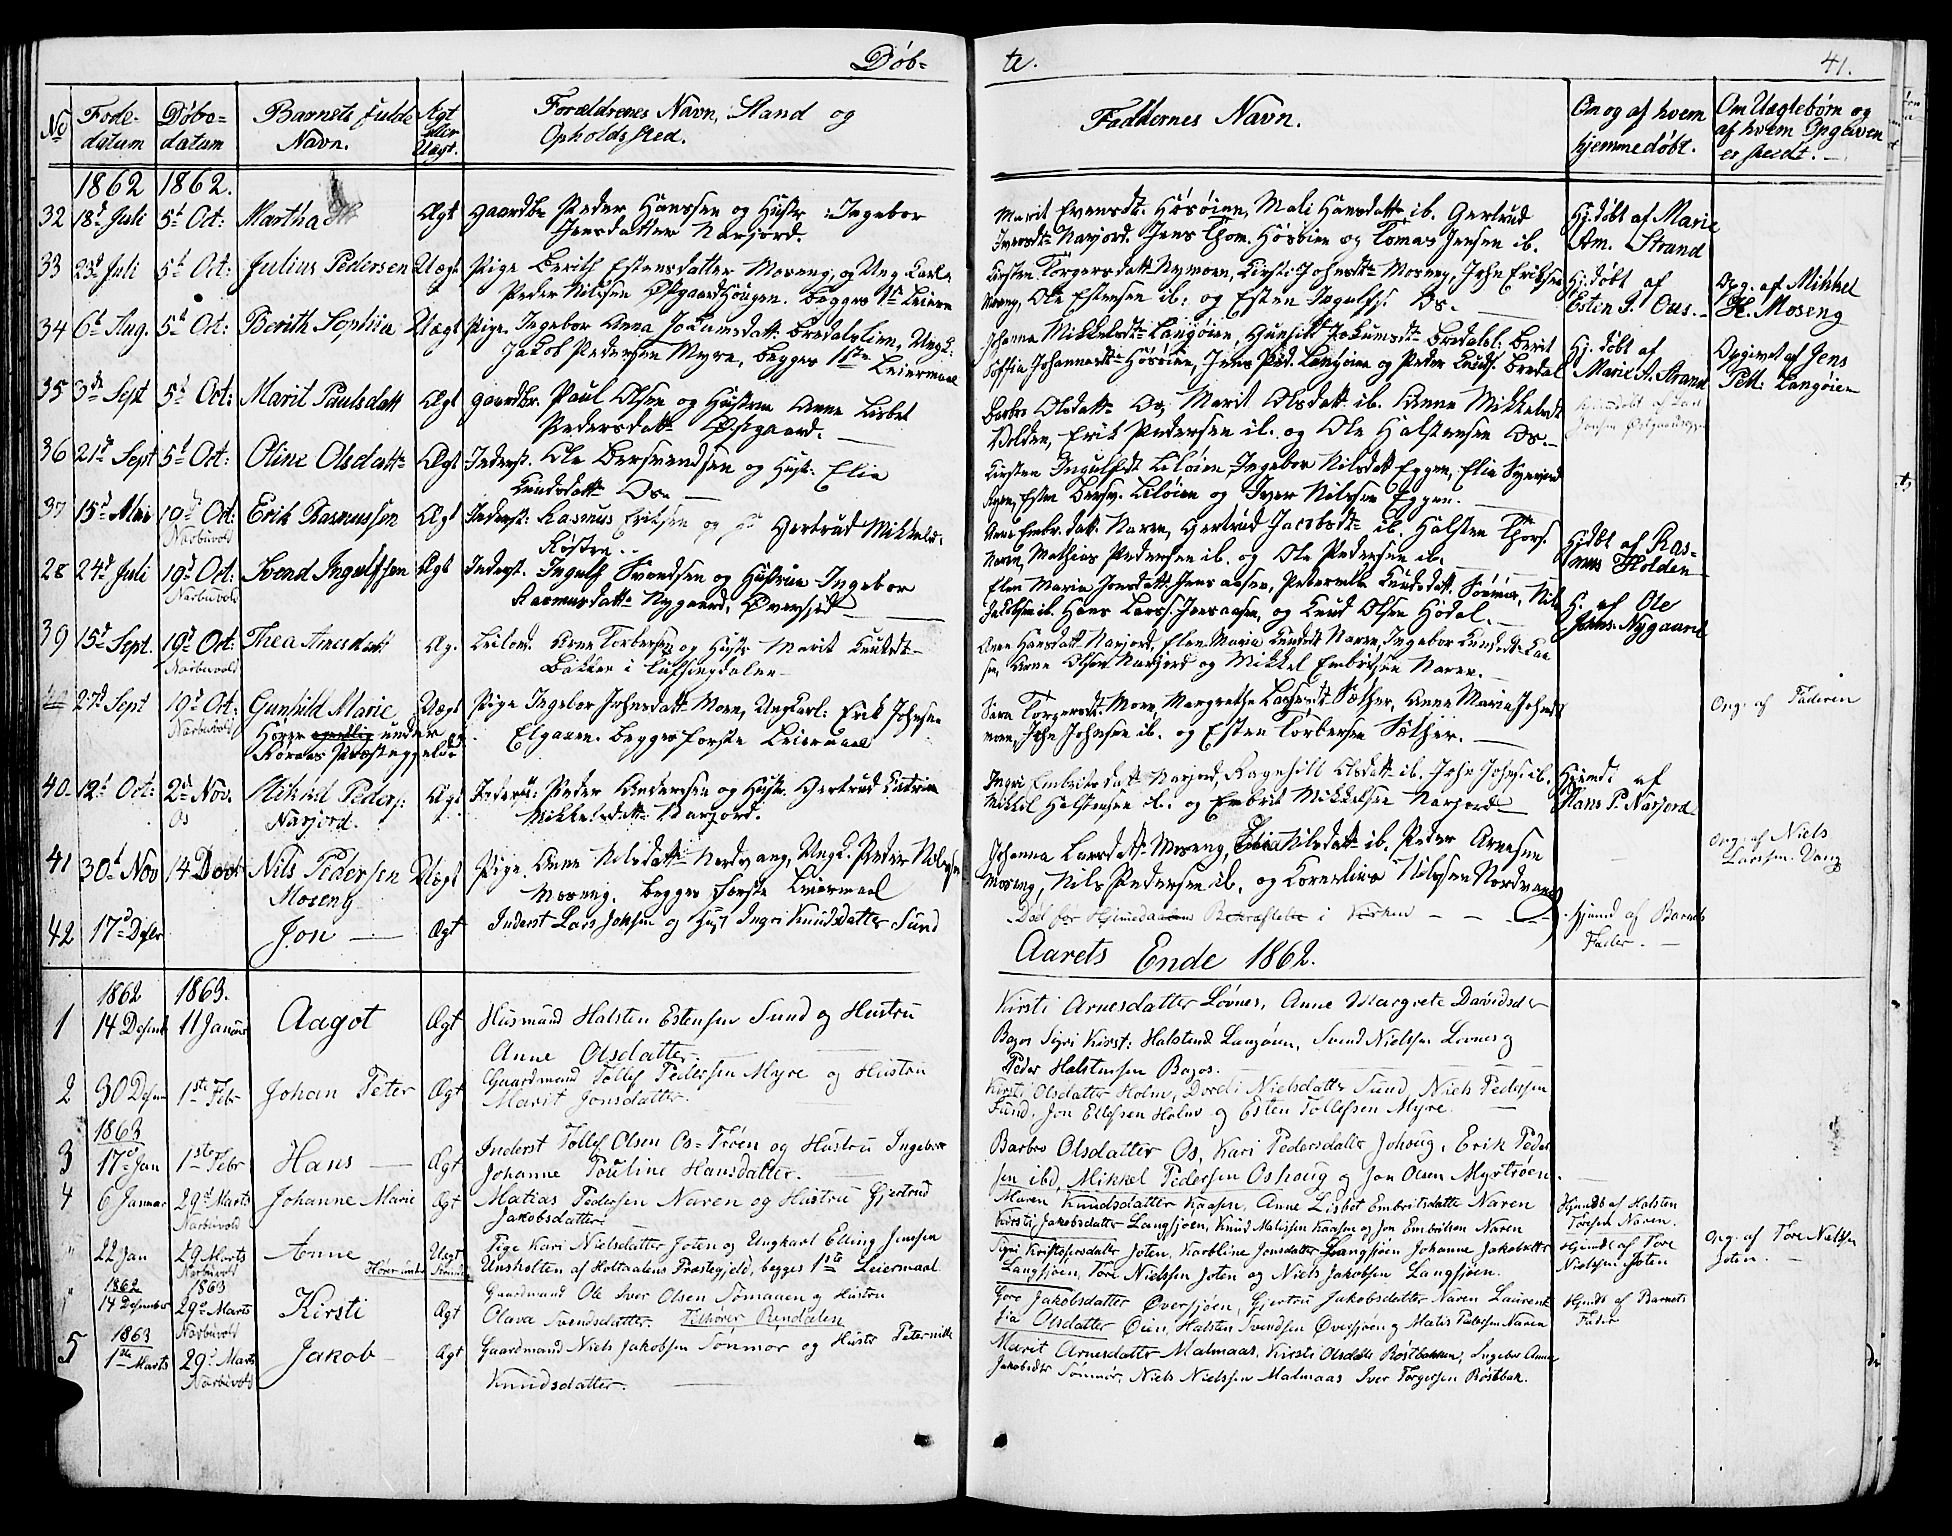 Døb-
te.
41.
No
Føde-
datum
Døbs-
datum
Barnets fulde
Navn.
Ægt
eller
Uægt.
Forældrenes Navn, Stand og
Opholdssted.
Faddernes Navn.
Om og af hvem
hjemmedøbt.
Om Uægtebørn og
af hvem Opgaven
er skeedt.
1862
1862.
32 18d Juli 5t Oct: Martha Ægt Gaardbr Peder Hanssen og Hustr: Ingebor
Jensdatter Narjord.
Marit Evensdt. Høsøien, Mali Hansdatt. ib. Gertrud
Iversdt Narjord. Jens Thom. Høsøien og Tomas Jensen ib.
Hj.døbt af Marie
Am. Strand
33 23d Juli 5t Oct: Julius Pedersen Uægt Pige Berith Estensdatter Moseng, og Ung Karl
Peder Nilssen Østgaardhougen. begges 1ste Leierm
Kirsten Torgersdatt Nymoen, Kirsti Johnsdt Moseng, John Eriksen
Moseng, Ole Estensen ib: og Esten Ingulfs. Os.
Hj.døbt af
Esten I. Oas.
Opg. af Mikkel
H. Moseng
34 6t Aug. 5t Oct: Berith Sophia Uægt Pige Ingebor Anna Jokumsdatt. Bredalslien, Ungk:
Jakob Pedersen Myre, begges 1ste Leiermaal
Johanna Mikkelsdt Langøien, Gunhild Jokumsdt Bredalsl: Berit
Soffia Johannesdt Høsøien, Jens Ped. Langøien og Peder Knuds. Bredal
Hj. døbt af
Marie A. Strand
Opgivet af Jens
Pett: Langøien
35 3de Sept 5t Oct: Marit Paulsdatt Ægt Gaardbr. Paul Olsen og Hustrue Anne Lisbet
Pedersdatt Østgaard.
Barbro Olsdatt Os, Marit Olsdatt ib. Anne Mikkelsdt
Volden, Erik Pedersen ib. og Ole Halstensen Os.
36 21d Sept 5t Oct: Oline Olsdatt Ægt Inderst. Ole Bersvendsen og Hust: Elie
Knudsdatt Os.
Kirsten Ingulfsdt Liløien, Ingebor Nilsdatt Eggen, Elie
Esten Bersv. Liløien og Iver Nilssen Eggen.
37 15d Mai 19d Oct: Erik Rasmussen Ægt Inderst: Rasmus Eriksen og Gertrud Mikkelsd:
Narbuvold
Røsten.
Anne Embr. datt. Naren, Gertrud Jacobsdt ib. Halsten Thors.
Naren, Mathias Pedersen ib. og Ole Pedersen ib.
Hjdbt af Ras-
mus Holden
28 24d Juli 19d Oct: Svend Ingulfssen Ægt Inderst. Ingulf Svendsen og Hustrue Ingebor
Narbuvold
Rasmusdatt Nygaard, Øversjød
Elen Maria Jonsdatt Jensaasen, Peternille Knudsdatt. Sønmør, Nils
Hans Larss. Jensaasen, og Knud Olsen Hodal.
H. af Ole
Johns. Nygaard
39 15d Sept. 19d Oct: Thea Arnesdatt Æg. Leilend. Arne Torbersen og Hustr Marit Knudsdt
Narbuvold
Bakken i Tuffsingdalen
Ane Hansdatt Narjord, Elen Maria Knudsdt Naren, Ingebor Knudsdt Kaa
sen, Arne Olsen Narjord og Mikkel Embritsen Naren.
27d Sept 19d Oct: Gunhild Marie Uægt Pige Ingebor Johnsdatt Moen, Ungkarl: Erik Johnsen
Narbuvold
Hører egentlig under
Røraas Præsteggeld
Elgaaen. begges første Leiermaal
Sara Torgersdt. Moen, Margrethe Sæther, Anne Maria Johnsdt
Moen, John Johnsen ib. og Esten Torbersen Sæther.
Opg. af Faderen
40 12t Oct: 2d Nov. Mikkel Peders: Ægt Inderst: Peder Andersen og Hustr. Gertrud Katrine
Os
Narjord.
Mikkelsdatt Narjord.
Ingri Embritsdatt Narjord, Ragnhill Olsdatt ib. John Johns. ib.
Mikkel Halstensen ib. og Embrit Mikkelsen Narjord
Hjemd: af
Hans P. Narjord
41 30t Nov 14 Nils Pedersen Uægt Pige. Anne Nilsdatt Nordvang, Ungk. Peder Nilssen
Moseng
Moseng. begges første Leiermaal
Johanna Larsdatt Moseng, Elen Nilsdatt ib. Peder Arnesen
Moseng, Nils Pedersen ib. og Kornelius Nilssen Nordvang
Opg. af Niels
Larssen Vang
42 17d Dsbr Jon Ægt Inderst Lars Jonsen og Hust Ingri Knudsdatter Sund
Død før Hjemedaaben Bekræftelse i Kirken
hjemd af Barnets
Fader.
Aarets Ende 1862.
1862
1863.
1 14 Desemb 11 Januar Aagot Ægt Husmand Halsten Estensen Sund og Hustru
Anne Olsdatter
Kirsti Arnesdatter Løvnes, Anne Margrete Davidsdr
Bagos Sigri Kirst: Halstensd Langøien, Svend Nielssen Lovnes og
Peder Halstensen Bagos.
2 30 Desem 1ste Febr Johan Peter Ægt Gaardmand Tollef Pedersen Myre og Hustru
Marit Jonsdatter.
Kirsti Olsdatter Holm, Dordi Nielsdatter Sund, Niels Pedersen
Sund, Jon Ellefsen Holm og Esten Tollefsen Myre.
1863
3 17d Jan 1ste Febr Hans Ægt Inderst Tollef Olsen Os-Trøen og Hustru Ingebor
Johanne Pouline Hansdatter.
Barbro Olsdatter Os, Kari Pedersdatter Johoug, Erik Peder
sen ibd, Mikkel Pedersen Oshoug og Jon Olsen Myrtrøen.
4 6 Januar 29d Marts Johanne Marie Ægt Matias Pedersen Naren og Hustru Gjertrud
Narbuvold
Jakobsdatter
Maren Knudsdatter Kaasen, Anne Lisbet Embritsdatter Naren
Kirsti Jakobsdatter Langsjøen, Knud Matissen Kaasen og Jon Embritsen Naren
Hjemdt af Halsten
Toresen Naren.
" 22 Jan 29 Marts Anne Uægt Pige Kari Nielsdatter Joten og Ungkarl Elling Jensen
Narbuvold
Hører under
Unsholten af Holtaalens Præstegjeld, begges 1ste Leiermaal
Sigri Kristofersdatter Joten, Karoline Jonsdatter Langsjøen Johanne Jakobsdatter
Langsjøen, Tore Nielssen Joten og Niels Jakobsen Langsjøen.
Hjemdt af Tore
Nielssen Joten
Opg. af Tore Nielssen
Joten.
1862
1863
" 14 Desember 29d Marts Kirsti Ægt Gaardmand Ole Iver Olsen Sømaaen og Hustru
Narbuvold
Olava Svendsdatter. Tilhører Rendalen
Gore Jakobsdatter Øversjøen, Gjertru Jakobsdatter Naren Laurent
sia Olsdatter Øien, Halsten Svendsen Øversjøen og Matis Pedersen Naren
Hjemdt af Barnets
Fader
1863
5 1ste Marts 29d Marts Jakob Ægt Gaardmand Niels Jakobsen Sønmør og Hustr Peternille
Narbuvold
Knudsdatter.
Marit Arnesdatter Malmaas, Kirsti Olsdatter Røstbakken, Ingebor Anne
Jakobsdtr Sønmør, Niels Nielssen Malmaas Iver Torgersen Røstbak.